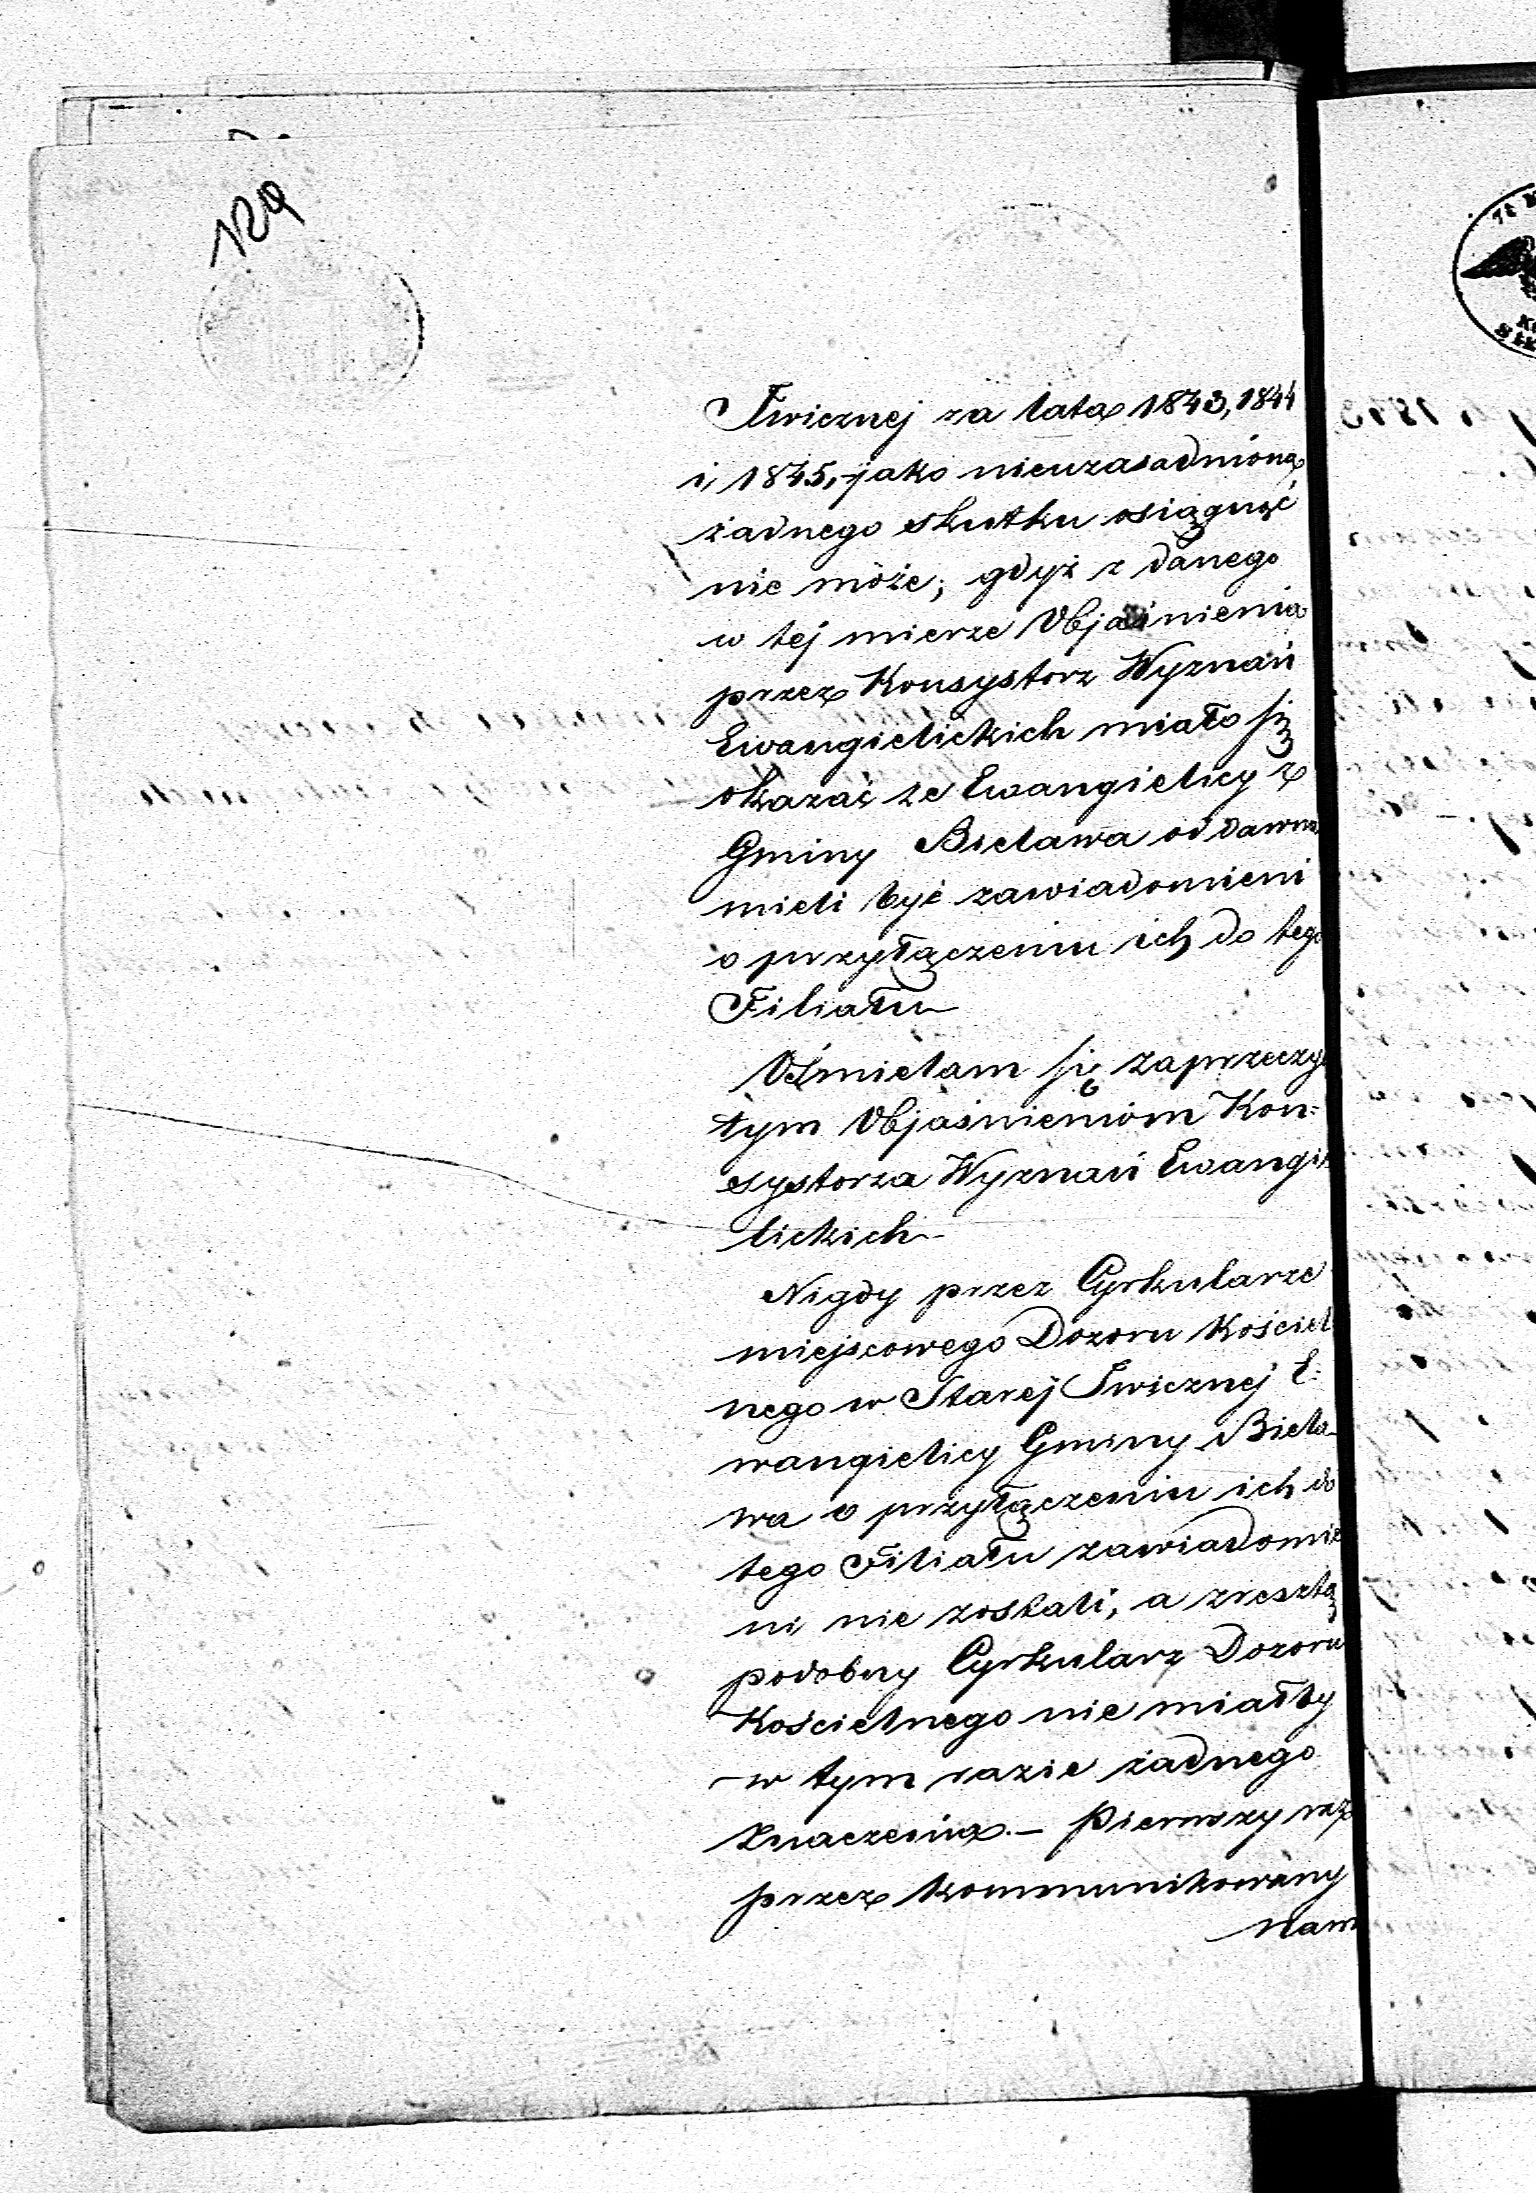 129
Iwicznej za lata 1843, 1844
i, 1845, jako nieuzasadniona
żadnego skutku osiągnąć
nie może; gdyż z danego
w tej mierze Objaśnienia
przez Konsystorz Wyznań
Ewangielickich miało się
okazać że Ewangielicy z
Gminy Bielawa od dawna
mieli być zawiadomieni
o przyłączeniu ich do tego
Filiału
Ośmielam się zaprzeczyć
tym Objaśnieniom Kon=
systorza Wyznań Ewangie
lickich
Nigdy przez Cyrkularze
miejscowego Dozoru Kościel
nego w Starej Iwicznej E=
wangielicy Gminy Biela-
wa o przyłączeniu ich do
tego Filiału zawiadomie
ni nie zostali, a zresztą
podobny Cyrkularz Dozoru
Kościelnego nie miałby
w tym razie żadnego
znaczenia. – Pierwszy raz
przez kommunikowany
nam